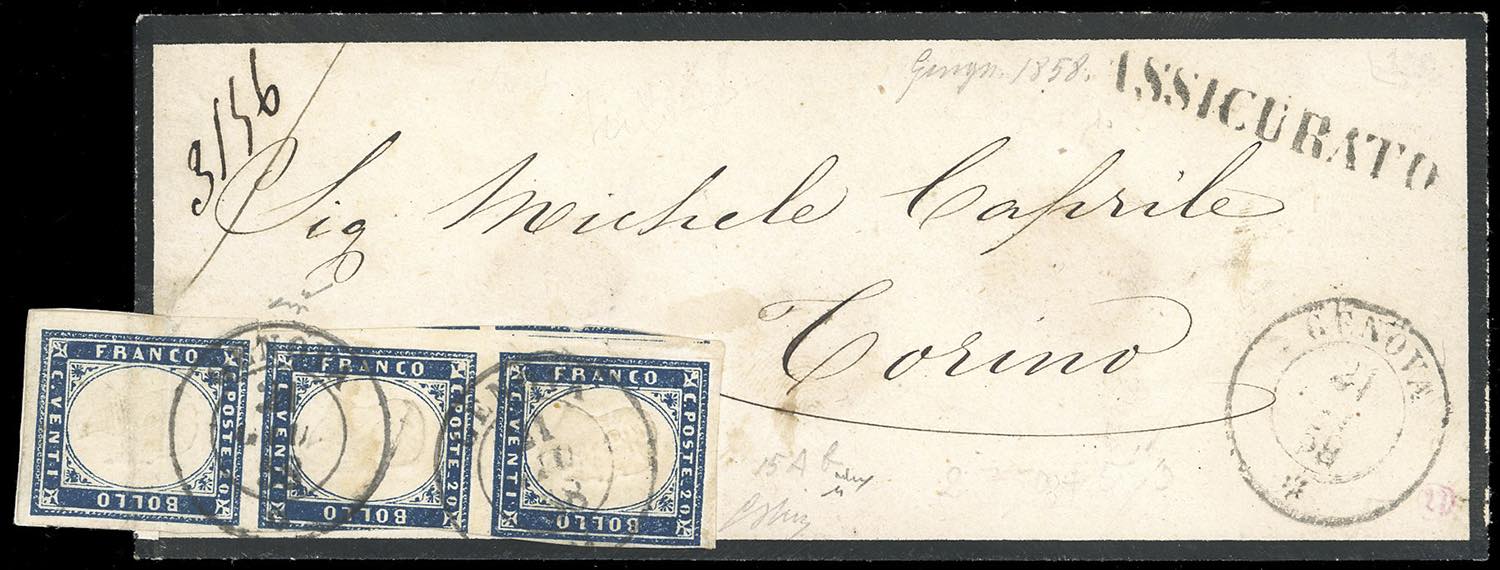 3156
1858.
ASSICURATO
Sig Michele Caprile
Torino
GENOVA
21
58
FRANCO
C. VENTI
C. POSTE 20
BOLLO
FRANCO
C. VENTI
C. POSTE 20
BOLLO
FRANCO
C. VENTI
C. POSTE 20
BOLLO
GENOVA
21
15 A b
2D